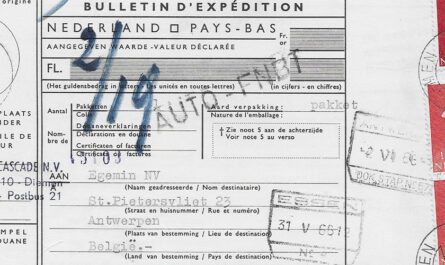 origine
BULLETIN D'EXPÉDITION
NEDERLAND □ PAYS-BAS
Fr.
or
AANGEGEVEN WAARDE - VALEUR DÉCLARÉE
FL.
2/19
(Het guldensbedrag in letters - Les unités en toutes lettres)
(in cijfers - en chiffres)
AUTO-FNBT
Aantal
Pakketten
Aard verpakking:
pakket
Nature de l'emballage:
Douaneverklaringen
Déclarations en douane
† Zie noot 5 aan de achterzijde
Voir note 5 au verso
Nombre de
Certificaten of facturen
Certificats ou factures
CASCADE N.V.
10 - Diemen
- Postbus 21
AAN
Egemin NV
(Naam geadresseerde / Nom destinataire)
St.Pietersvliet 23
(Straat en huisnummer / Rue et numéro)
Antwerpen
(Plaats van bestemming / Lieu de destination)
België.-
(Land van bestemming / Pays de destination)
ESSEN
31 V 66